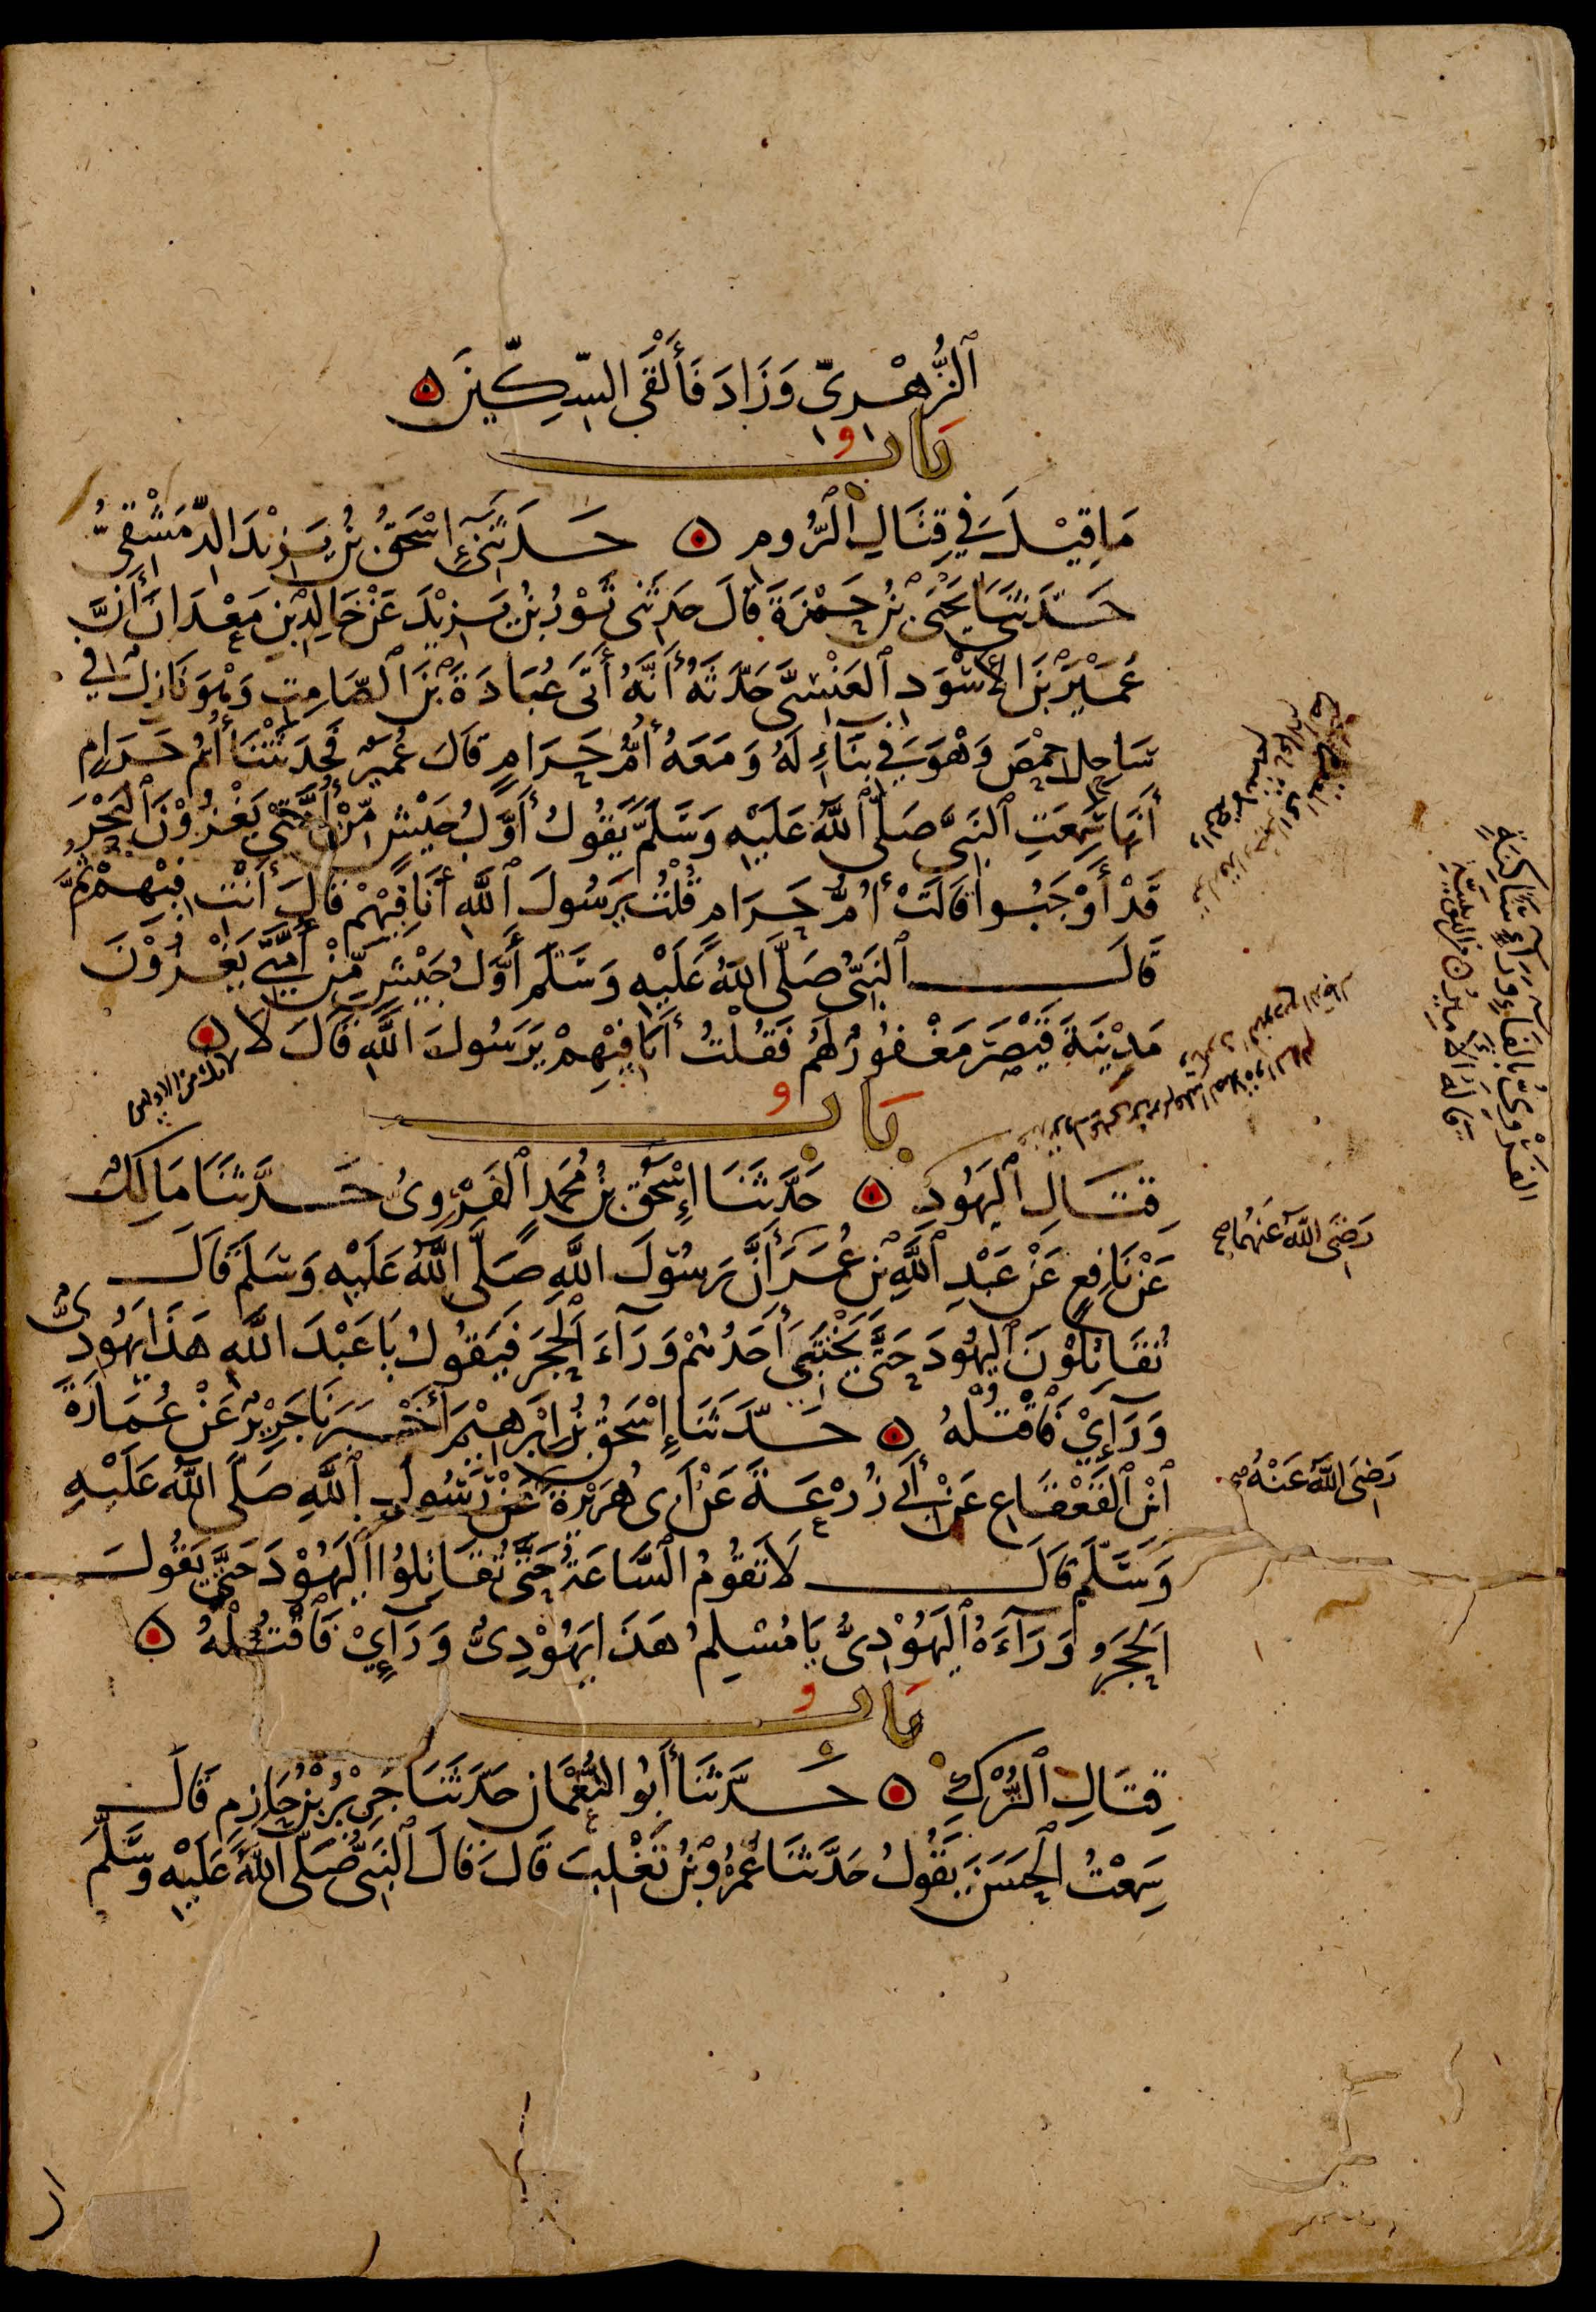 ٱلزُّهْرِىِّ وَزَادَ فَأَلْقَى السِّكِّينَ
بَاب
مَا قِيلَ فِي قِتَالِ ٱلرُّومِ حَدَّثَنِي إِسْحَقُ بْنُ يَزِيْدَ الدِّمَشْقِيُّ
حَدَّثَنَا يَحْيَى بْنُ حَمْزَةَ قَالَ حَدَّثَنِى ثَوْرُ بْنُ يَزِيْدَ عَنْ خَالِدِ بْنِ مَعْدَانَ أَنَّ
عُمَيْرَ بْنَ الأَسْوَدِ ٱلعَنْسِىَّ حَدَّثَهُ أَنَّهُ أَتَى عُبَادَةَ بْنَ ٱلصَّامِتِ وَهْوَ نَازِلٌ فِي
سَاحِلِ حِمْصَ وَهْوَ فِي بِنَاءٍ لَهُ وَمَعَهُ أُمُّ حَرَامٍ قَالَ عُمَيْرٌ فَحَدَّثَتْنَا أُمُّ حَرَامٍ
أَنَّهَا سَمِعَتِ ٱلنَّبِىَّ صَلَّى ٱللَّهُ عَلَيْهِ وَسَلَّمَ يَقُولُ أَوَّلُ جَيْشٍ مِّنْ أُمَّتِي يَغْزُوْنَ ٱلْبَحْرَ
قَدْ أَوْجَبُوا قَالَتْ أُمُّ حَرَامٍ قُلْتُ يَرَسُولَ ٱللَّهِ أَنَا فِيْهِمْ قَالَ أَنْتِ فِيْهِمْ ثُمَّ
قَالَ ٱلنَّبِىُّ صَلَّى اللَّهُ عَلَيْهِ وَسَلَّمَ أَوَّلُ جَيْشٍ مِّنْ أُمَّتِي يَغْزُوْنَ
مَدِيْنَةَ قَيْصَرَ مَغْفُورٌ لَهُمْ فَقُلْتُ أَنَا فِيْهِمْ يَرَسُولَ اللَّهِ قَالَ لَا
لانك من الاولين
بَاب
قِتَالِ ٱليَهُودِ حَدَّثَنَا إِسْحَقُ بْنُ مُحَمَّدٍ ٱلفَرْوِىُّ حَدَّثَنَا مَالِكٌ
عَنْ نَافِعٍ عَنْ عَبْدِ ٱللَّهِ بْنِ عُمَرَ أَنَّ رَسُوْلَ اللَّهِ صَلَّى اللَّهُ عَلَيْهِ وَسَلَّمَ قَالَ
رَضِىَ اللَّهُ عَنْهُمَا صح
تُقَاتِلُوْنَ ٱليَهُوْدَ حَتَّى يَخْتَبِىَ أَحَدُهُمْ وَرَآءَ ٱلْحَجَرِ فَيَقُولُ يَا عَبْدَ اللَّهِ هَذَا يَهُوْدِىٌّ
وَرَآئِيْ فَاقْتُلْهُ حَدَّثَنَا إِسْحَقُ بْنُ إِبْرَهِيْمَ أَخْبَرَنَا جَرِيْرٌ عَنْ عُمَارَةَ
ٱبْنِ ٱلقَعْقَاعِ عَنْ أَبِي زُرْعَةَ عَنْ أَبِى هُرَيْرَةَ عَنْ رَسُولِ ٱللَّهِ صَلَّى اللَّهُ عَلَيْهِ
رَضِىَ اللَّهُ عَنْهُ صح
وَسَلَّمَ قَالَ لَا تَقُوْمُ السَّاعَةُ حَتَّى تُقَاتِلُوْا ٱليَهُوْدَ حَتَّى يَقُولَ
ٱلحَجَرُ وَرَآءَهُ ٱليَهُوْدِىُّ يَا مُسْلِمُ هَذَا يَهُوْدِىٌّ وَرَآئِيْ فَاقْتُلْهُ
بَاب
قِتَالِ ٱلتُّرْكِ حَدَّثَنَا أَبُو النُّعْمَانِ حَدَّثَنَا جَرِيْرُ بْنُ حَازِمٍ قَالَ
سَمِعْتُ ٱلحَسَنَ يَقُولُ حَدَّثَنَا عَمْرُو بْنُ تَغْلِبَ قَالَ قَالَ ٱلنَّبِىُّ صَلَّى اللَّهُ عَلَيْهِ وَسَلَّمَ